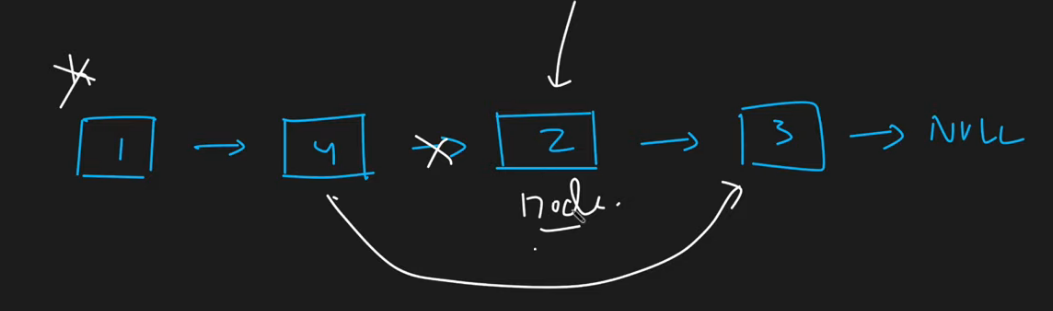 1 → 4 → 2 → 3 → NULL
node.